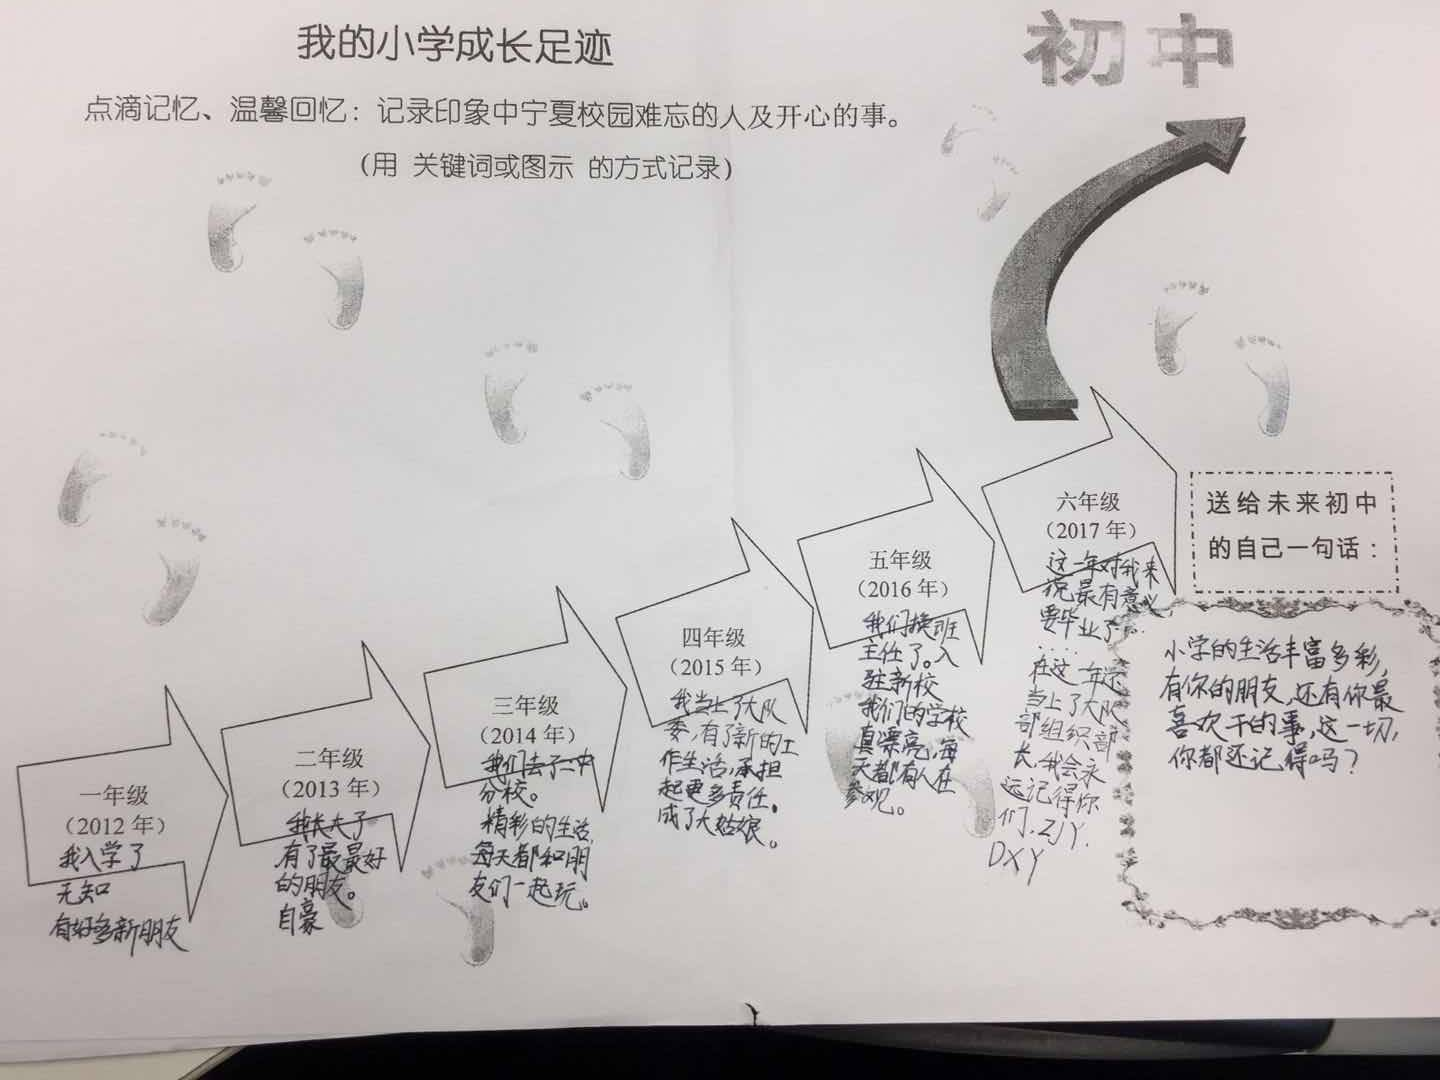 我的小学成长足迹
初中
点滴记忆、温馨回忆：记录印象中宁夏校园难忘的人及开心的事。
（用 关键词或图示 的方式记录）
一年级
（2012 年）
我入学了
无知
有好多新朋友
二年级
（2013 年）
我长大了
有了最最好
的朋友。
自豪
三年级
（2014 年）
我们去了二中
分校。
精彩的生活,
每天都和朋
友们一起玩。
四年级
（2015 年）
我当上了大队
委,有了新的工
作生活,承担
起更多责任。
成了大姑娘。
五年级
（2016 年）
我们换班
主任了。入
驻新校
我们的学校
真漂亮,每
天都有人在
参观。
六年级
（2017 年）
这一年对我来
说最有意义,
要毕业了...
....
在这一年还
当上了大队
部组织部
长,我会永
远记得你
们.ZJY.
DXY
送给未来初中
的自己一句话：
小学的生活丰富多彩,
有你的朋友,还有你最
喜欢干的事,这一切,
你都还记得吗?